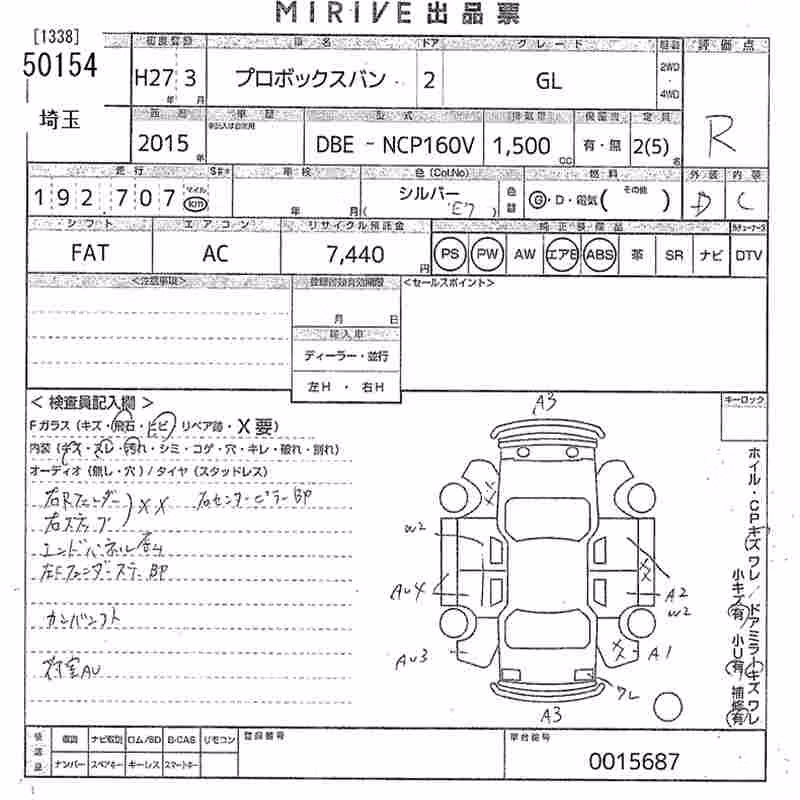 MIRIVE 出品票
[1338]
50154
埼玉
初度登録 車名 ドア グレード 駆動 評価点
H27 3 プロボックスバン 2 GL 2WD ・ 4WD
年 月
R
西暦 車歴 型式 排気量 保証書 定員
2015 年 DBE - NCP160V 1,500 CC 有・無 2(5) 名
走行 S## 車検 色 (Col.No) 燃料 外装 内装
192,707 マイル km 年 月 シルバー ( 'E7 ) 色替 G・D・電気( その他 ) D C
シフト エアコン リサイクル預託金 純正装備品
FAT AC 7,440 円 PS PW AW エアB ABS 革 SR ナビ DTV
<注意事項> 登録書類有効期限 <セールスポイント>
月 日
輸入車
ディーラー・並行
左H ・ 右H
< 検査員記入欄 > キーロック
Fガラス (キズ・飛石・ヒビ リペア跡・X要)
内装 (キズ・スレ・汚れ・シミ・コゲ・穴・キレ・破れ・割れ)
オーディオ (無し・穴) / タイヤ (スタッドレス)
右Rフェンダー XX 右センターピラーBP
右ステップ
エンドパネル
カンバンフト
荷室AU
A3
W2
AU4
AU3
XX
XX
A2
W2
XX
A1
ワレ
A3
ホイル・CPキズ ワレ / ドアミラーキズ ワレ
小キズ(有) 小U(有) 補修(有)
確認欄 取説 ナビ取説 ロム/SD B-CAS リモコン 登録番号 車台番号
ナンバー スペアキー キーレス スマートキー
0015687